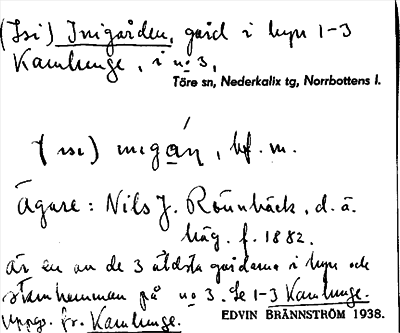 (Isi) Inigården, gård i byn 1-3
Kamlunge, i no 3,
Töre sn, Nederkalix tg, Norrbottens l.
bf. m.
Ägare: Nils J. Rönnbäck, d.ä.
häg. f. 1882.
är en av de 3 äldsta gårdarna i byn och
stamhemman på no 3. Se 1-3 Kamlunge.
Uppg. fr. Kamlunge.
EDVIN BRÄNNSTRÖM 1938.